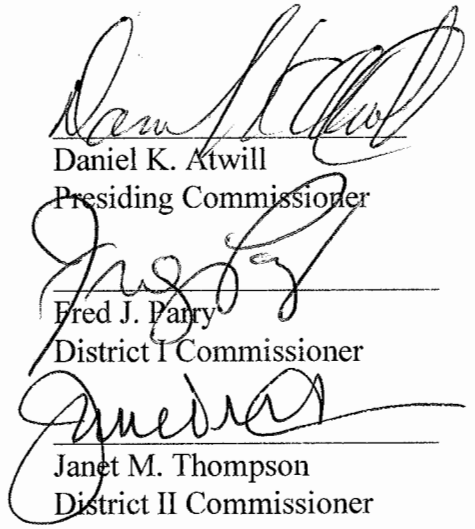 Daniel K. Atwill
Presiding Commissioner
Fred J. Parry
District I Commissioner
Janet M. Thompson
District II Commissioner